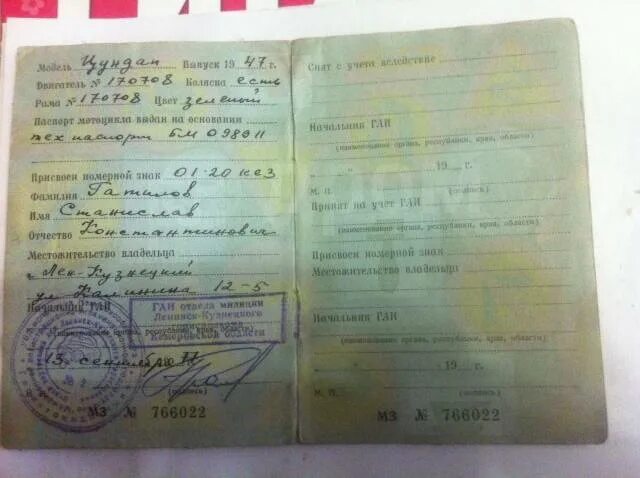 Модель Цундап Выпуск 1947 г.
Двигатель № 170708 Коляска есть
Рама № 170708 Цвет зеленый
Паспорт мотоцикла выдан на основании
тех паспорт БМ 098911
Присвоен номерной знак 01-20 кез
Фамилия Гатилов
Имя Станислав
Отчество Константинович
Местожительство владельца
г. Лен-Кузнецкий
ул Калинина 12-5
Начальник ГАИ
ГАИ отдела милиции
Ленинск-Кузнецкого
Кемеровской области
(наименование органа, республики, края, области)
13 сентября 77
(подпись)
МЗ № 766022
Снят с учета вследствие
Начальник ГАИ
(наименование органа, республики, края, области)
„ “ 19 г.
М. П. (подпись)
Принят на учет ГАИ
(наименование органа, республики, края, области)
Присвоен номерной знак
Местожительство владельца
Начальник ГАИ
(наименование органа, республики, края, области)
„ “ 19 г.
М. П. (подпись)
МЗ № 766022